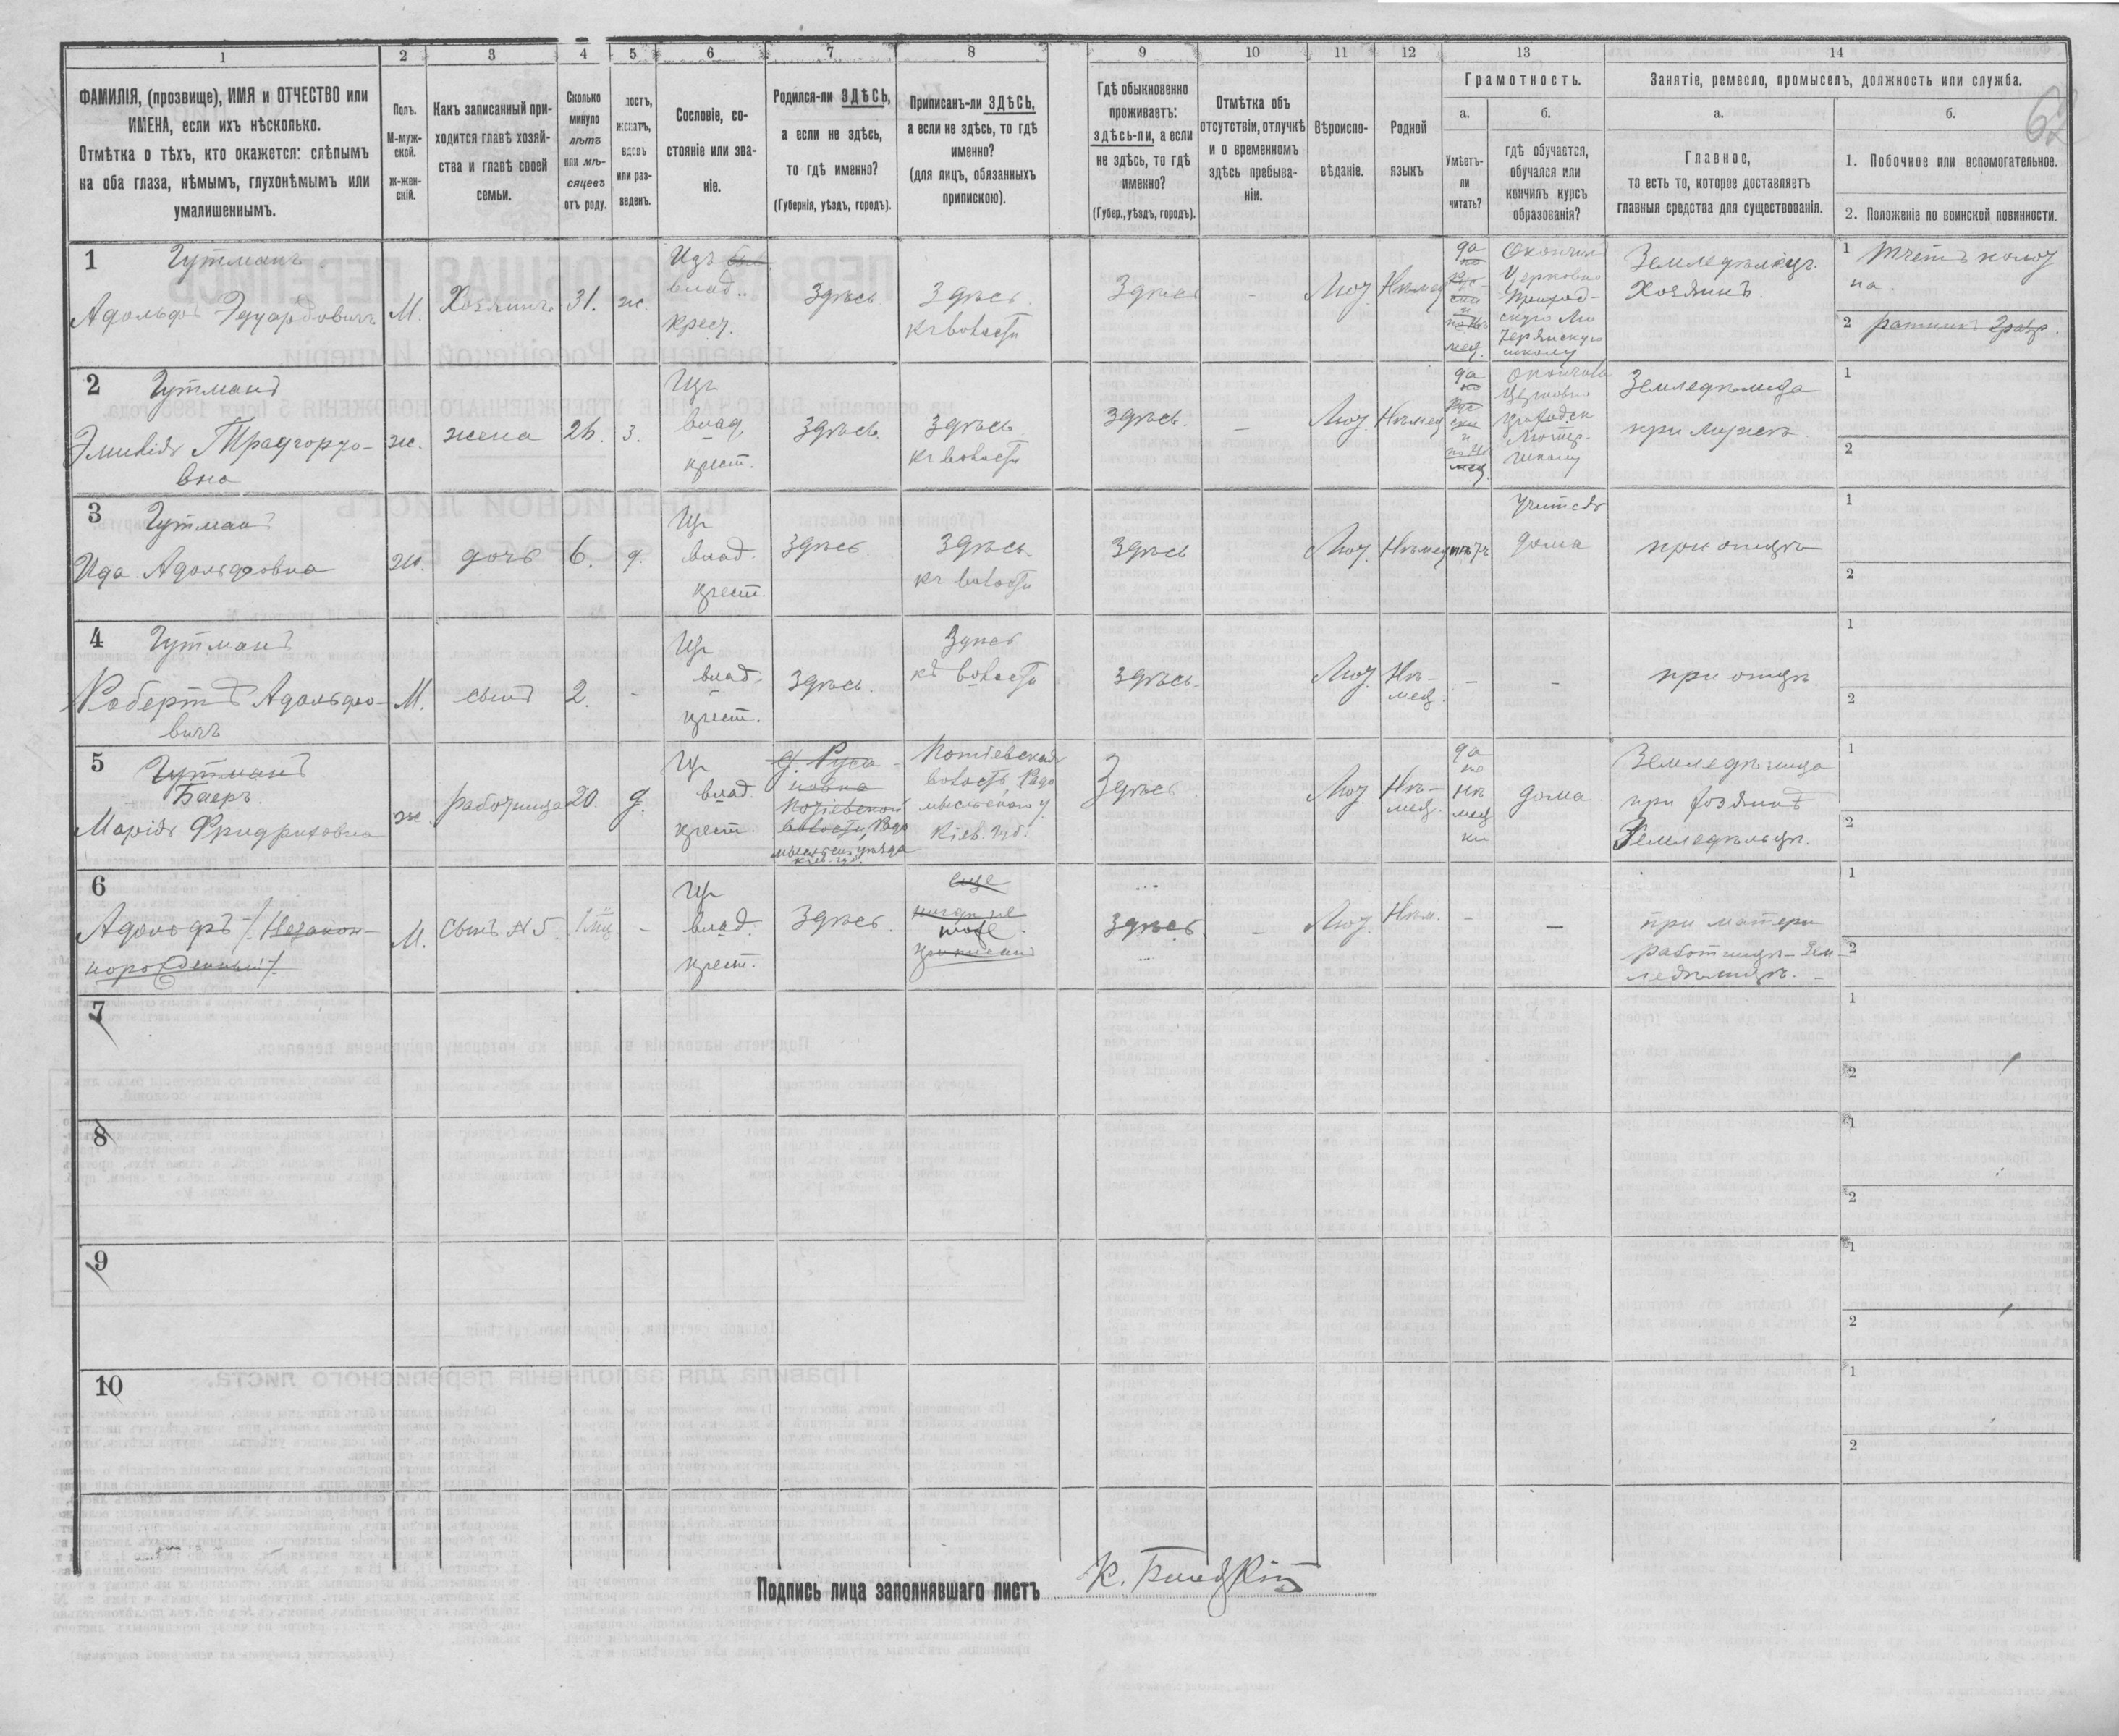 1
2
3
4
5
6
7
8
9
10
11
12
13
14
ФАМИЛІЯ, (прозвище), ИМЯ и ОТЧЕСТВО или
ИМЕНА, если ихъ нѣсколько.
Отмѣтка о тѣхъ, кто окажется: слѣпымъ
на оба глаза, нѣмымъ, глухонѣмымъ или
умалишеннымъ.
Полъ.
М-муж-
ской.
Ж-жен-
скій.
Какъ записанный при-
ходится главѣ хозяй-
ства и главѣ своей
семьи.
Сколько
минуло
лѣтъ
или мѣ-
сяцевъ
отъ роду.
лостъ,
женатъ,
вдовъ
или раз-
веденъ.
Сословіе, со-
стояніе или зва-
ніе.
Родился-ли ЗДѢСЬ,
а если не здѣсь,
то гдѣ именно?
(Губернія, уѣздъ, городъ).
Приписанъ-ли ЗДѢСЬ,
а если не здѣсь, то гдѣ
именно?
(для лицъ, обязанныхъ
припискою).
Гдѣ обыкновенно
проживаетъ:
здѣсь-ли, а если
не здѣсь, то гдѣ
именно?
(Губер., уѣздъ, городъ).
Отмѣтка объ
отсутствіи, отлучкѣ
и о временномъ
здѣсь пребыва-
ніи.
Вѣроиспо-
вѣданіе.
Родной
языкъ
Грамотность.
а.
Умѣетъ-
ли
читать?
б.
гдѣ обучается,
обучался или
кончилъ курсъ
образованія?
Занятіе, ремесло, промыселъ, должность или служба.
а.
Главное,
то есть то, которое доставляетъ
главныя средства для существованія.
б.
1. Побочное или вспомогательное.
2. Положеніе по воинской повинности.
62
1
Гутманъ
Адольфъ Эдуардовичъ
М.
Хозяинъ
31.
ж.
Изъ
влад.
крест.
Здѣсь
Здѣсь.
къ волости
Здѣсь
-
Лют.
Нѣмец
да
по
Рус-
ски
и
по Нѣ
мец.
Окончилъ
Церковно
Приход-
скую Лю
теранскую
школу
Земледѣлецъ.
Хозяинъ.
1
2 ратникъ 2 разр.
2
Гутманъ
Эмилія Трауготто-
вна
ж.
жена
26.
З.
Изъ
влад.
крест.
Здѣсь.
Здѣсь
къ волости
Здѣсь.
-
Лют.
Нѣмец
да
по
Рус
ски
и
по Нѣ
мец.
окончила
Церковно
приходск
Лютер.
школу
Земледѣлица
при мужѣ
1
2
3
Гутманъ
Ида Адольфовна
ж.
дочь
6.
д.
Из
влад.
крест.
Здѣсь.
Здѣсь.
къ волости
Здѣсь
Лют.
Нѣмец
нѣтъ
Учится
дома
при отцѣ
1
2
4
Гутманъ
Робертъ Адольфо-
вичъ
М.
сынъ
2.
-
Из
влад.
крест.
Здѣсь.
Здѣсь
къ волости
Здѣсь.
Лют.
Нѣ-
мец.
-
-
при отцѣ.
1
2
5
Гутманъ
Баеръ.
Марія Фридриховна
ж.
работница
20.
д.
Из
влад.
крест.
д. Руса-
новка
Потіевской
волости, Радо
мысльск. уѣзда
Кіев. губ.
Потіевская
волость, Радо
мысльского у.
Кіев. губ.
Здѣсь.
Лют.
Нѣ-
мец.
да
по
Нѣ
мец
ки
дома.
Земледѣлица
при хозяинѣ
Земледѣльцѣ.
1
2
6
Адольфъ /Незакон-
норожденный/.
М.
Сынъ №5.
-
Из
влад.
крест.
Здѣсь.
еще
Здѣсь.
-
Лют.
Нѣм.
-
-
при матери
работницѣ-Зем
ледѣлицѣ.-
1
2
7
1
2
8
1
2
9
1
2
10
1
2
Подпись лица заполнявшаго листъ